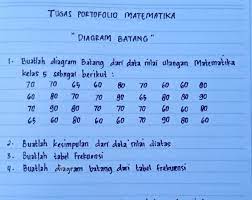 TUGAS PORTOFOLIO MATEMATIKA
"DIAGRAM BATANG"
1. Buatlah diagram Batang dari data nilai ulangan Matematika
kelas 5 sebagai berikut :
70 70 65 60 80 70 60 60 80
60 80 70 70 90 65 80 80 90
70 90 80 70 70 60 70 60
65 60 60 65 90 80 70 80
2. Buatlah kesimpulan dari data nilai diatas
3. Buatlah tabel frekuensi
4. Buatlah diagram batang dari tabel frekuensi